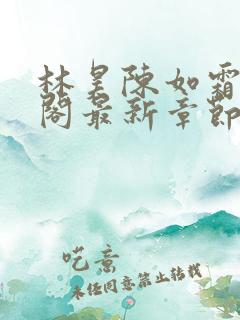 林昊陳如霜
閣最新章節
呓意
未经同意禁止转载